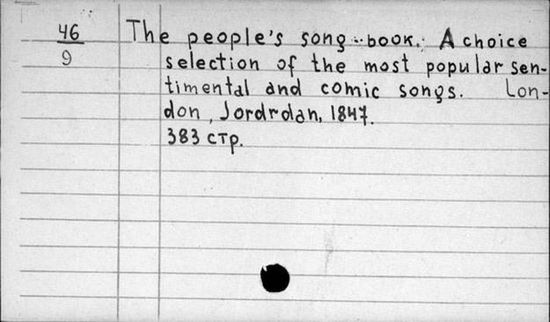 46
9
The people's song-book. A choice
selection of the most popular sen-
timental and comic songs. Lon-
don, Jordrdan, 1847.
383 стр.